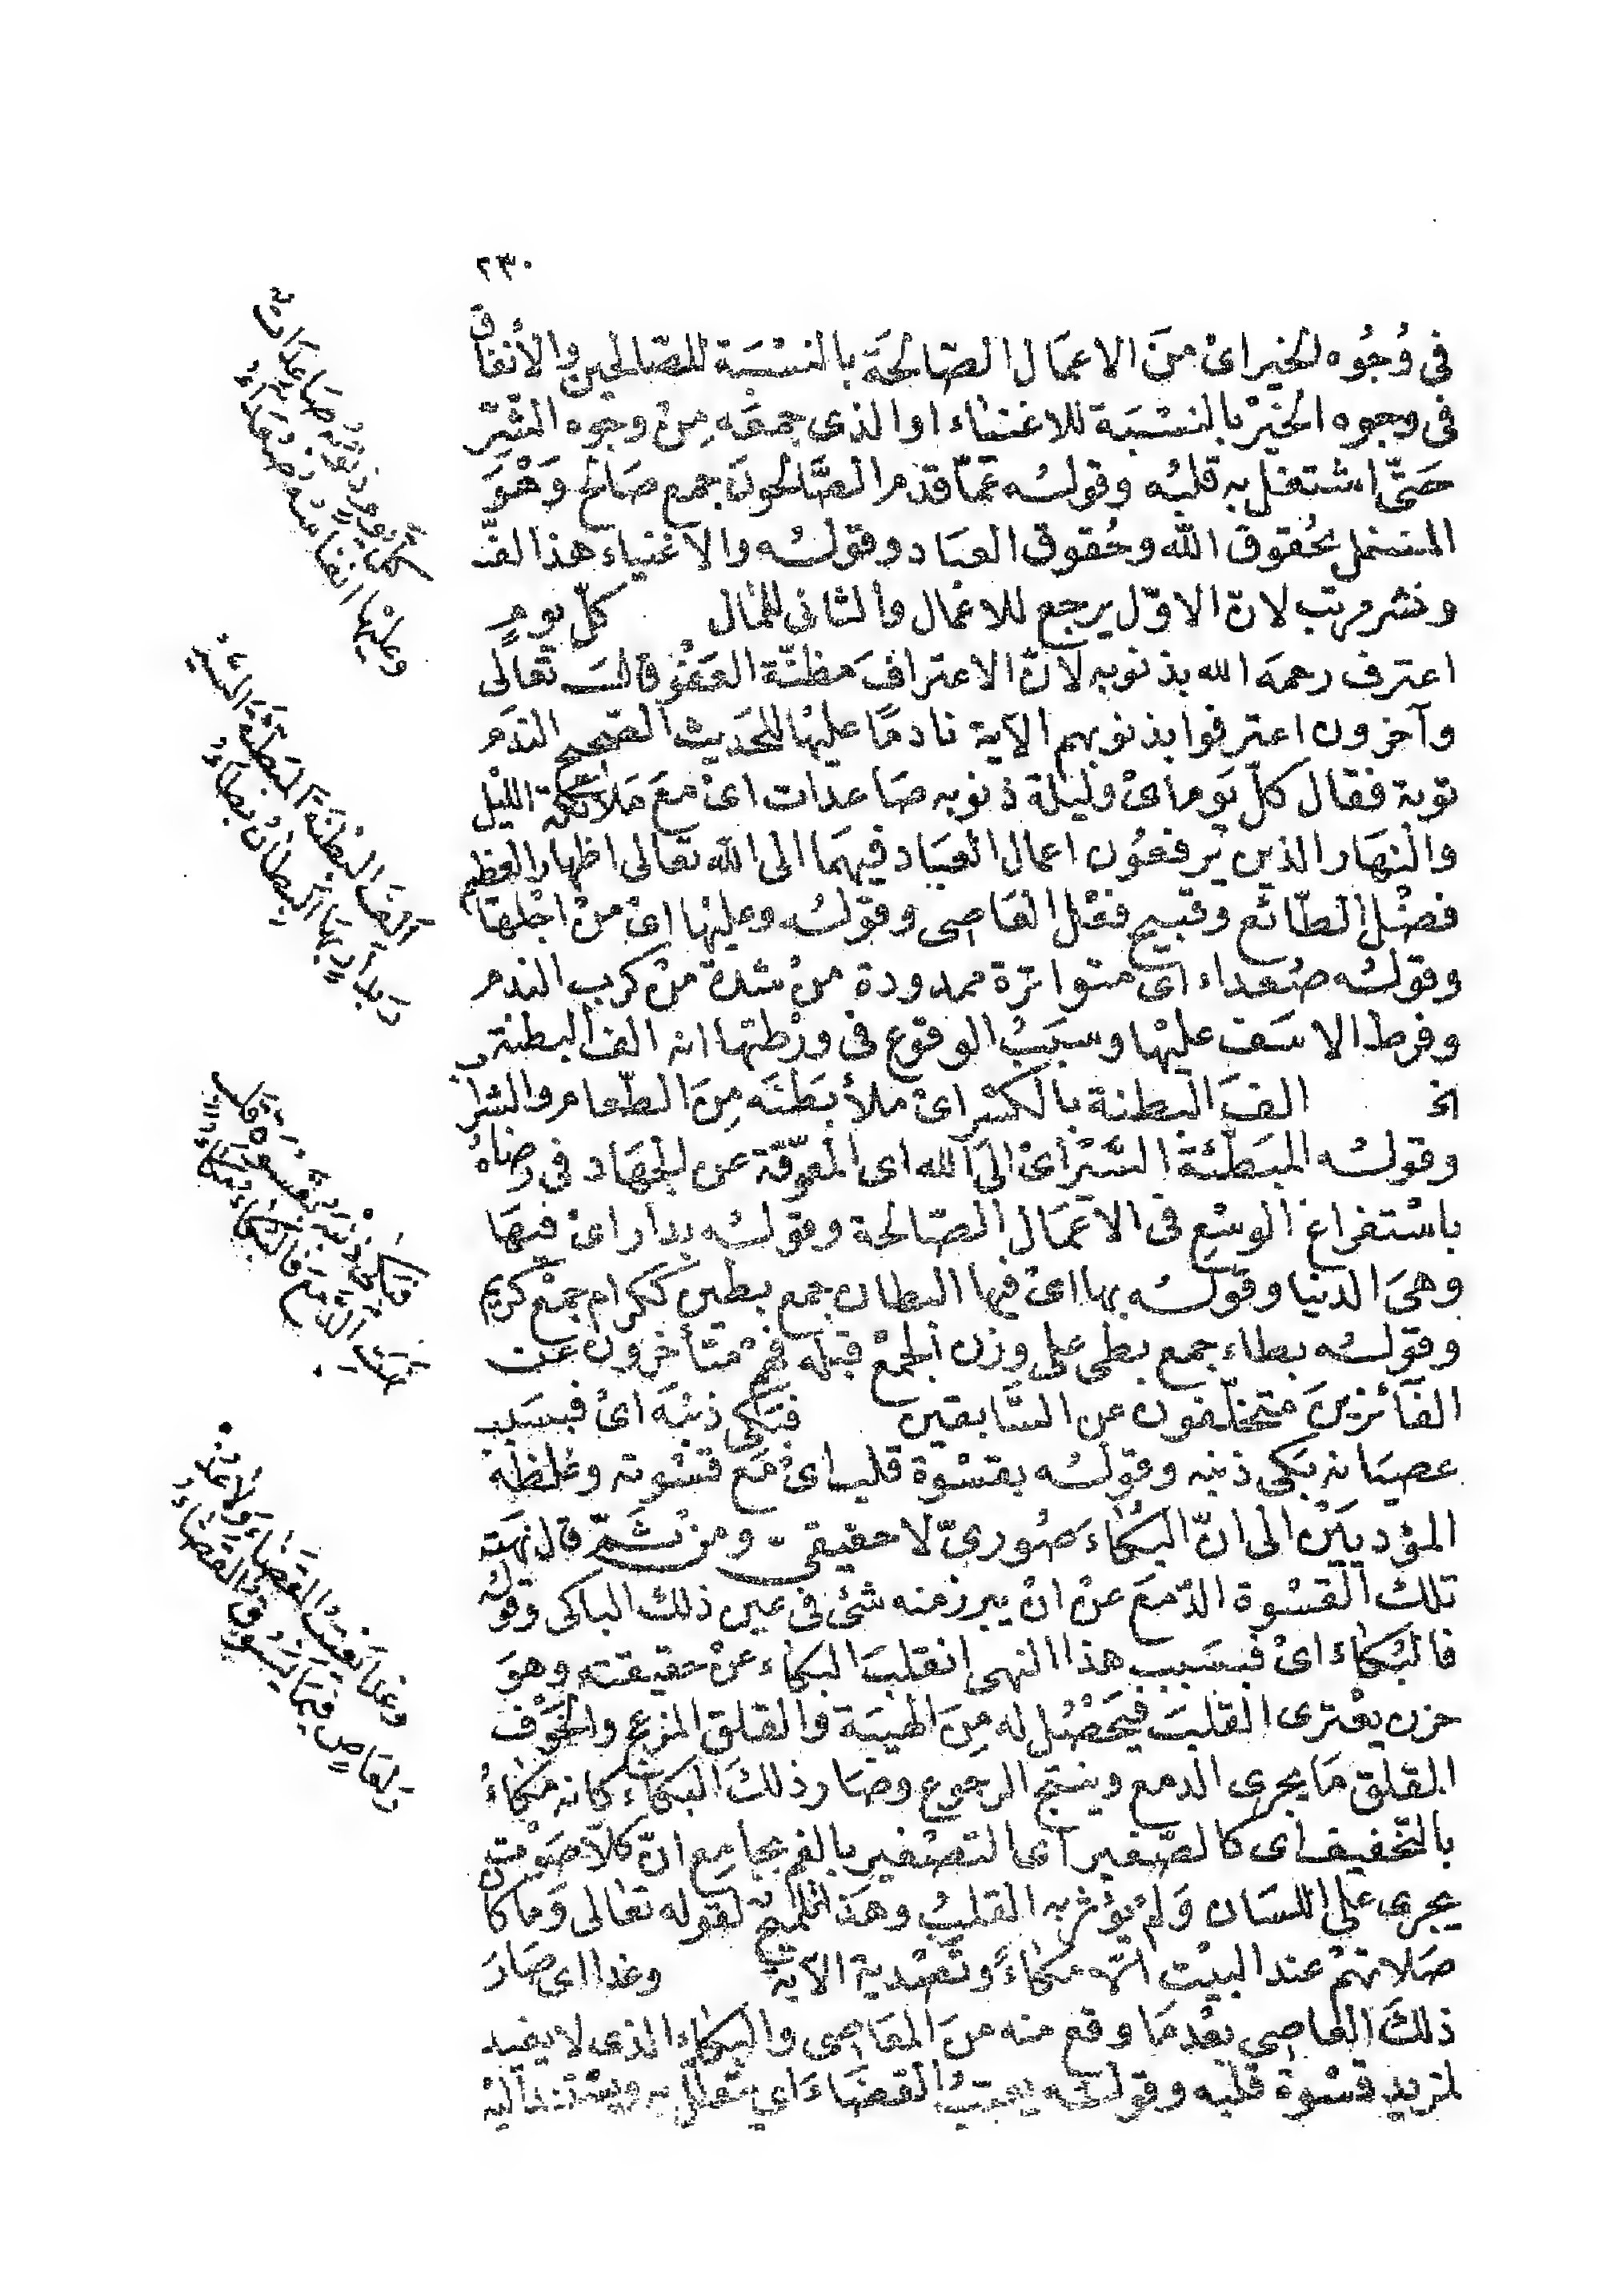 ٢٣٠
في وُجُوه الخير اىْ منَ الاعمَال الصّالحَة بالنسْبَة للصّالحين والأنفاق
فى وجوه الخيْر بالنسْبَة للاغنياء او الذى جمعَه مِنْ وجوه الشّرّ
حَتّى اشتغل به قلبُه وقولـُه ممّا قدّم الصَّالحونَ جمع صَالح وَهْوَ
المشتمل بحُقوق الله وحُقوق العبَاد وقولـُه والاغنياء هذا لفّ
ونشر مرتب لانّ الاوّل يرجع للاعْمال والثانى للمَال كلّ يومٍ
اعترف رحمَه الله بذنوبه لأنّ الاعترافَ مظنّة العَفْو قالــَ تَعَالى
وآخرون اعترفوا بذنوبهم الآية نادمًا عليْها للحَديث الصَحيح الندَم
توبة فقال كلّ يَوم اىْ وليْلة ذنوبه صَاعدات اىْ مَعَ مَلائكة الليْل
والنهَار الذين يُرفعُون اعمال العبَاد فيهمَا الى الله تعَالى اظهار العظم
فضْل الطّائع وقبيح فعْل العَاصى وقوْلـُه وعليْها اىْ منْ اجْلها
وقوْلـُه صُعداء اىْ متواترة ممدودة منْ شدّة منْ كرب الندم
وفرط الاسَف عليْها وسبَبُ الوقوْع فى ورْطتها انه الف البطنة
الخ الفَ البطنة بالكسْر اىْ ملأ بَطنَه مِنَ الطّعام والشراب
وقولـُه المبَطّئة السَّيْر اىْ الى الله اى المعوّقة عن الجهَاد فى رضاهُ
باسْتفراغ الوسْع فى الاعْمَال الصّالحة وقوْلـُه بدار اىْ فيهَا
وهىَ الدنيا وقوْلـُه بها اىْ فيها البطان جمع بطين ككرام جمْع كريم
وقوْلـُه بطاء جمع بطى على وزن الجمْع قبله فهُمْ متأخرون عن
الفآئزينَ متخلّفون عن السَّابقين فبَكى ذنبَه اىْ فبسَبب
عصيَانه بَكى ذنبه وقولـُه بقسْوة قلب اىْ مَع قسْوته وغلظه
المؤديَيْن الى انّ البُكاءَ صُورىّ لا حقيقى ومنْ ثَــمّ قال نهَت
تلك القسْوة الدّمعَ عنْ انْ يبرز منه شئ فى عين ذلك الباكى وقوله
فالبُكاء اىْ فبسَبب هذا النهى انقلبَ البكاء عنْ حقيقته وهوَ
حزن يعْترى القلبَ فيَحْصُل له مِنَ الهيبَة والقلق المزعج والخَوْف
المقلق مَا يجرى الدمع وينتج الرجوع وصَار ذلكَ البكاء كانه مكاءُ
بالتّخفيف اى كالصّفير اى التصْفير بالفم بجامع انّ كلّا صَوْت
يجرى على اللسَان وَلمْ يؤثر به القلبُ وهَذا تلميح لقوله تعَالى وَما كان
صَلاتهُمْ عند البيْت الّا مكاءً وتصْدية الآية وغدا اى صَارَ
ذلكَ العاصى بعْدمَا وقع منه منَ المعَاصى والبكاء الذى لا يفيد
لمزيد قسْوة قلبه وقولـه يعتبُ القضَاءَ اي يتعلّل به ويسْتند اليْه
كلّ يومٍ ذنوبُه صَاعدَاتٌ
وعليْها انفاسُه صُعَدَاءُ
اَلِفَ البِطْنَةَ المبَطّئَةَ السَّيْرِ
بدَارٍ بهَا البِطَانُ بِطَاءُ
فبَكى ذنبَه بقسْوَة قلبٍ
نهَتِ الدَّمْعَ فالبُكَاءُ مُكَاءُ
وغدَا يَعْتِبُ القضَاءَ ولا عُذرَ
لعَاصٍ فيمَا يَسُوقُ القضَاءُ